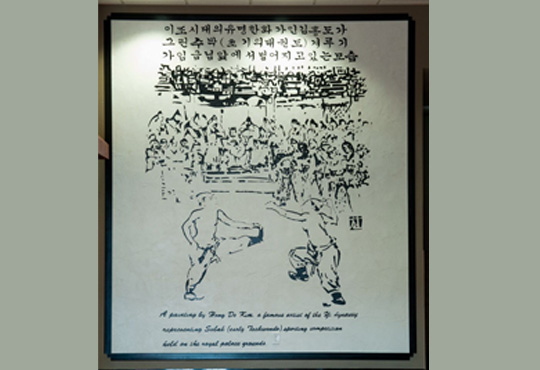 이조시대의유명한화가인김홍도가
그린수박(초기의태권도)겨루기
가임금님앞에서벌어지고있는모습
A painting by Hong Do Kim, a famous artist of the Yi dynasty
representing Subak (early Taekwondo) sporting competition
held on the royal palace grounds